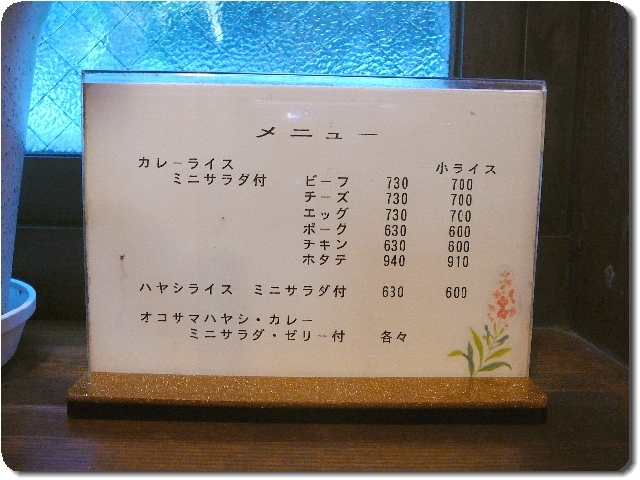 メニュー
カレーライス 小ライス
ミニサラダ付 ビーフ 730 700
チーズ 730 700
エッグ 730 700
ポーク 630 600
チキン 630 600
ホタテ 940 910
ハヤシライス ミニサラダ付 630 600
オコサマハヤシ・カレー
ミニサラダ・ゼリー付 各々